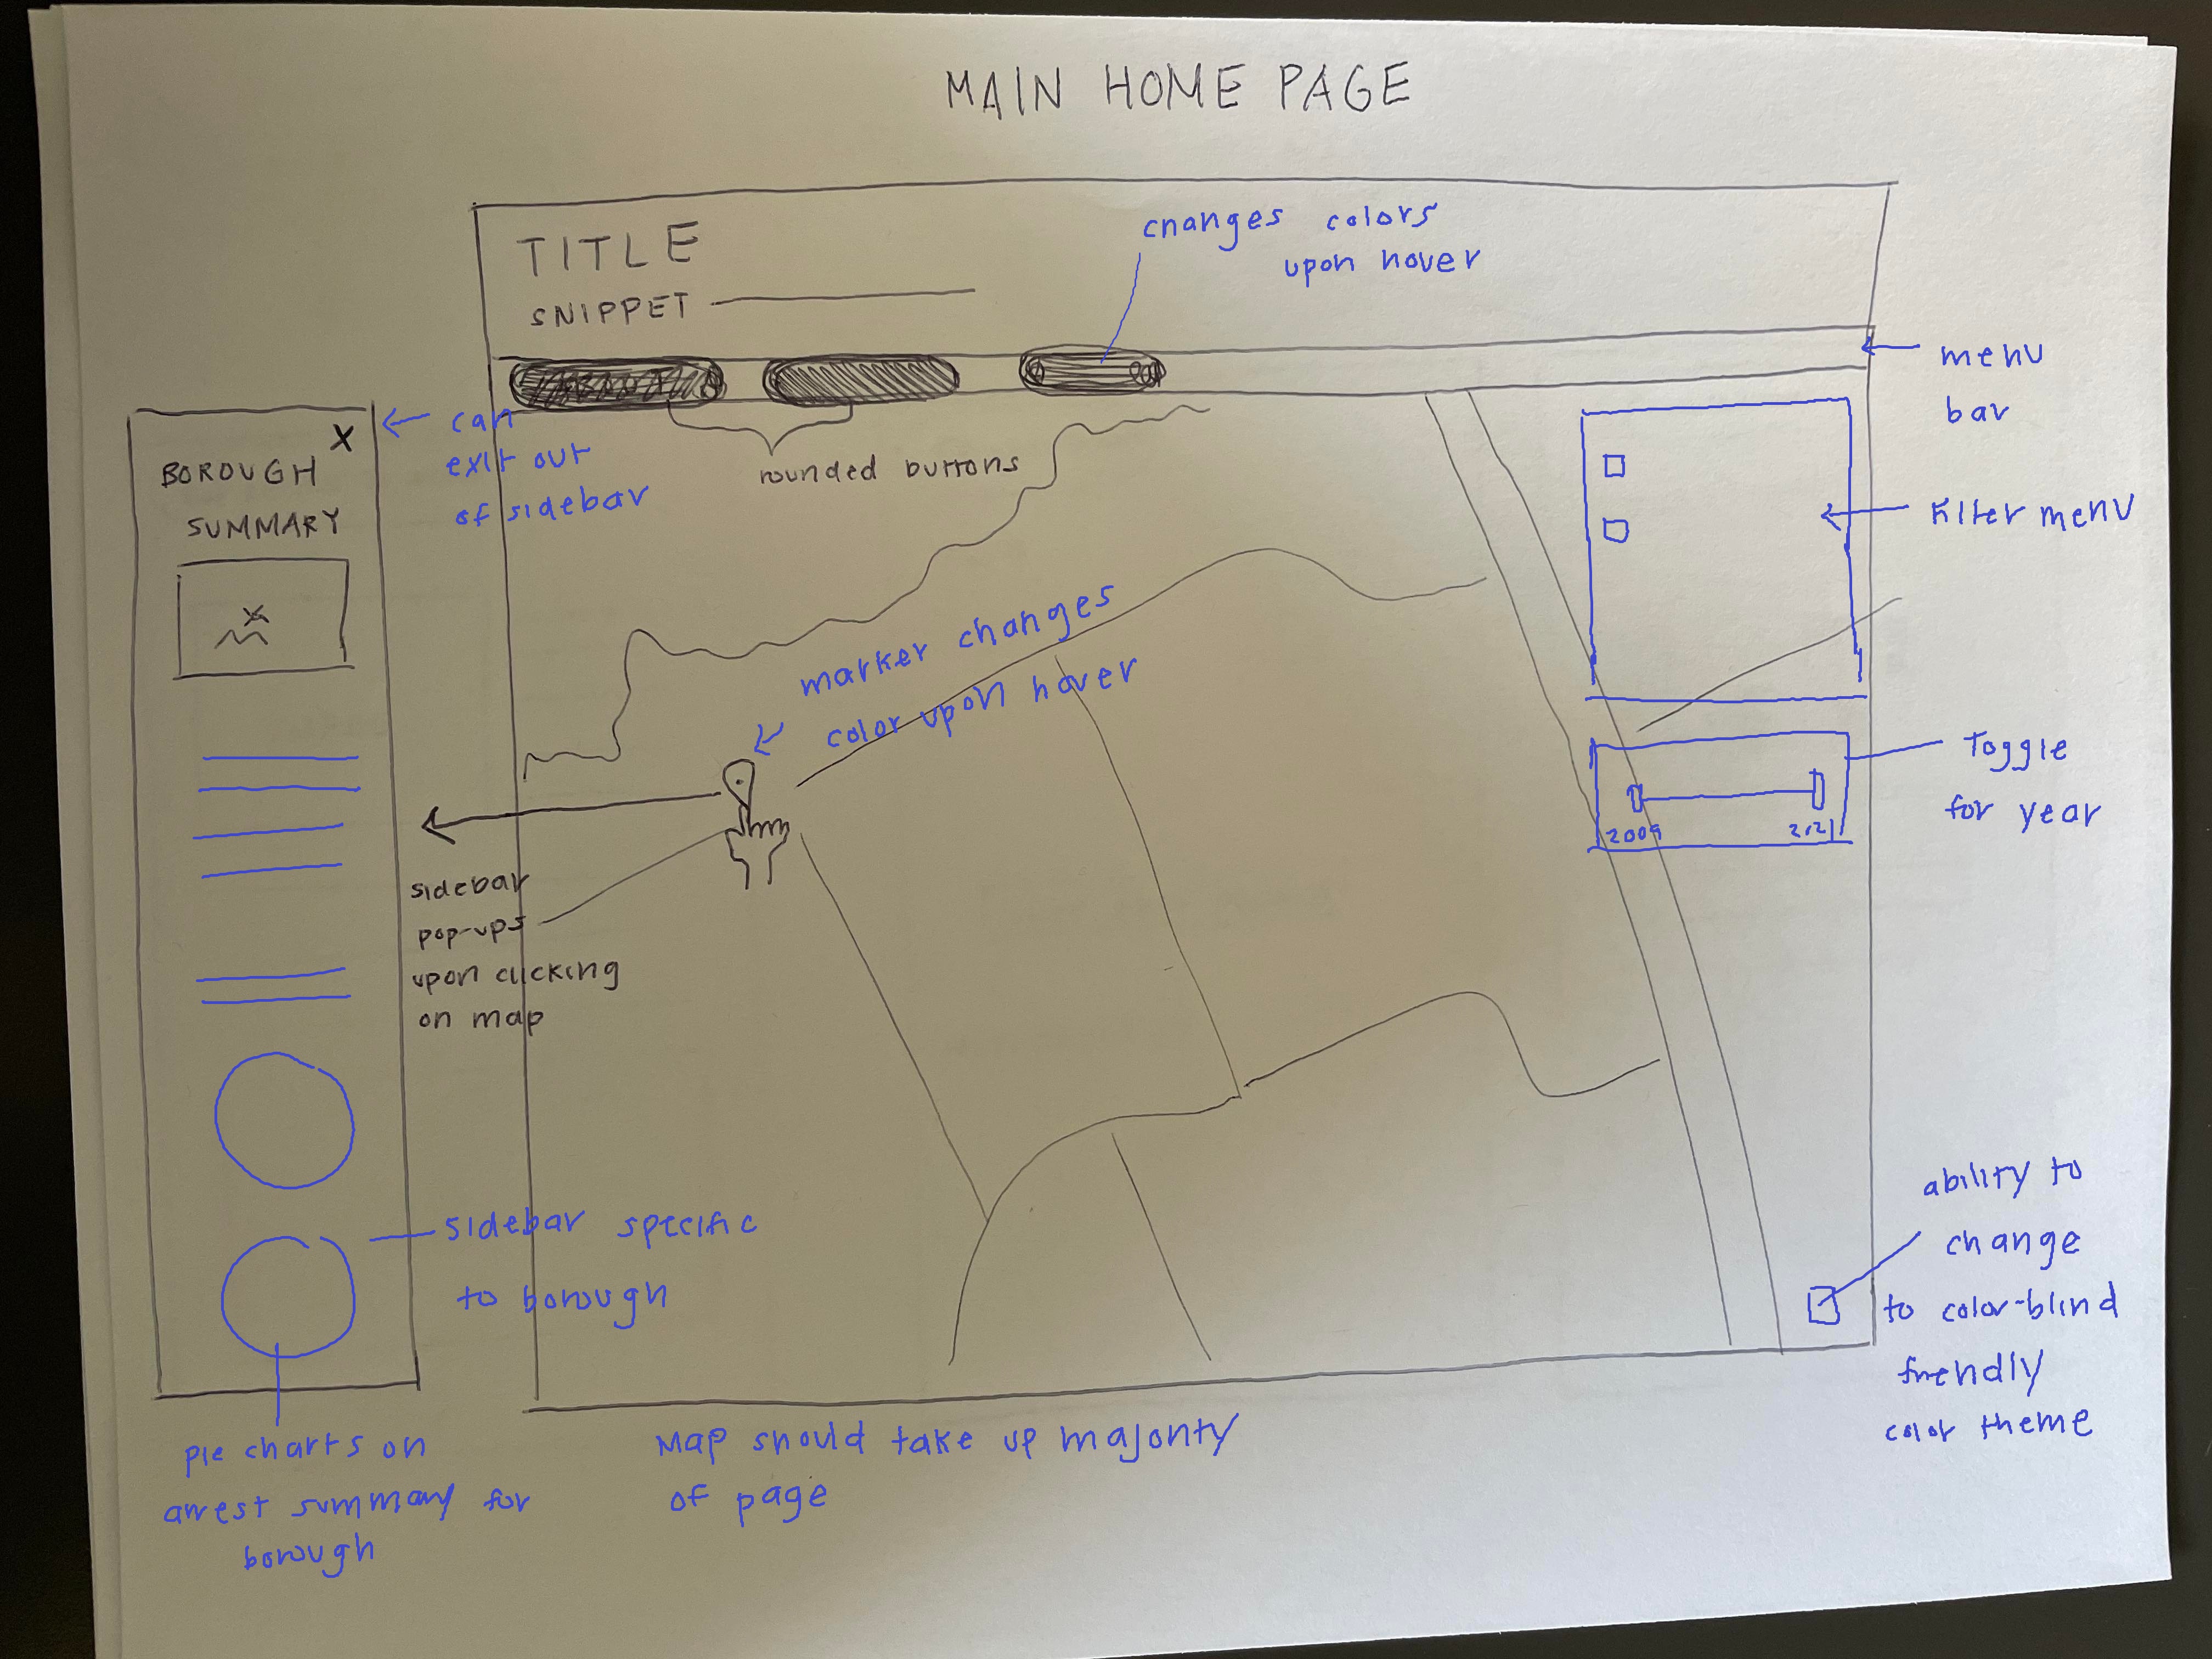 MAIN HOME PAGE
TITLE
SNIPPET
changes colors
upon hover
menu
bar
can
exit out
of sidebar
rounded buttons
X
BOROUGH
SUMMARY
Filter menu
marker changes
color upon hover
Toggle
for year
2009
sidebar
pop-ups
upon clicking
on map
ability to
change
to color-blind
friendly
color theme
sidebar specific
to borough
pie charts on
arrest summary for
borough
Map should take up majority
of page